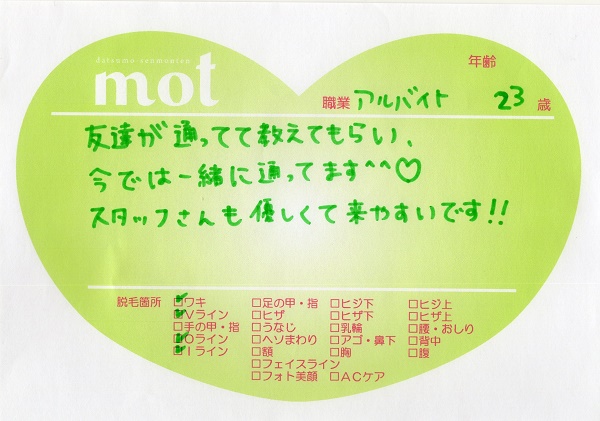 datsumo senmonten
mot
年齢
職業 アルバイト 23 歳
友達が通ってて教えてもらい、
今では一緒に通ってます^^♡
スタッフさんも優しくて来やすいです!!
脱毛箇所 ☑ワキ □足の甲・指 □ヒジ下 □ヒジ上
☑Vライン □ヒザ □ヒザ下 □ヒザ上
□手の甲・指 □うなじ □乳輪 □腰・おしり
☑Oライン □ヘソまわり □アゴ・鼻下 □背中
☑Iライン □額 □胸 □腹
□フェイスライン
□フォト美顔 □ACケア